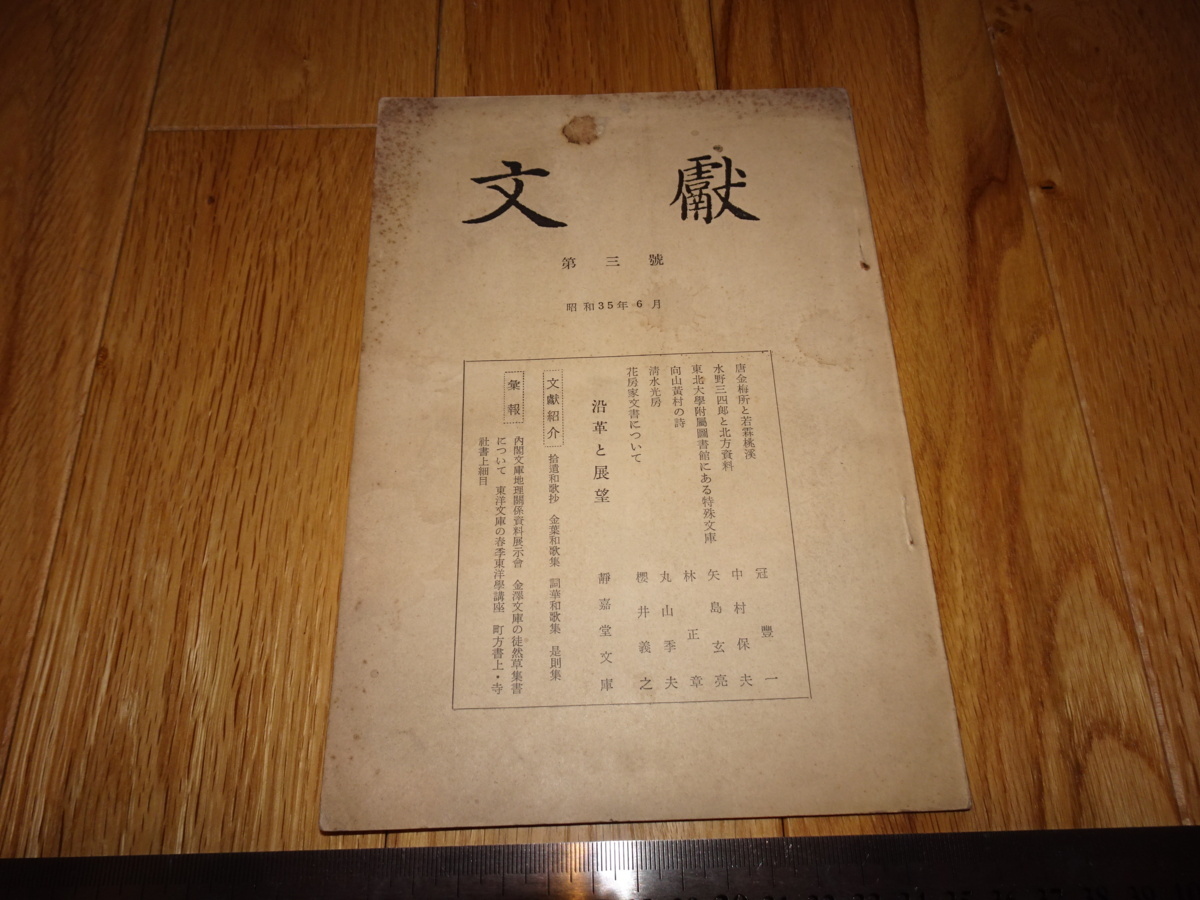 文獻
第三號
昭和35年6月
唐金梅所と若霖桃溪 冠豐一
水野三四郎と北方資料 中村保夫
東北大學附屬圖書館にある特殊文庫 矢島玄亮
向山黃村の詩 林正章
清水光房 丸山季夫
花房家文書について 櫻井義之
沿革と展望 靜嘉堂文庫
文獻紹介 拾遺和歌抄 金葉和歌集 詞華和歌集 是則集
彙報 內閣文庫地理關係資料展示會 金澤文庫の徒然草集書
について 東洋文庫の春季東洋學講座 町方書上・寺
社書上細目